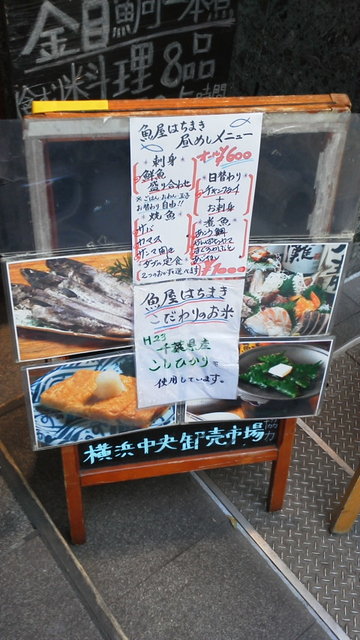 金目鯛一本煮
料理8品
時間
魚屋はちまき
昼めしメニュー
オール¥600
刺身
鮮魚
盛り合わせ
※ごはん おわん 玉子
お替わり自由!!
焼魚
サバ
カマス
サンマ開き
日替わり
チキンフライ
+
お刺身
煮魚
ダブル定食
2つのおかず選べます
¥1000
魚屋はちまき
こだわりのお米
H23
千葉県産
こしひかりを
使用しています。
横浜中央卸売市場